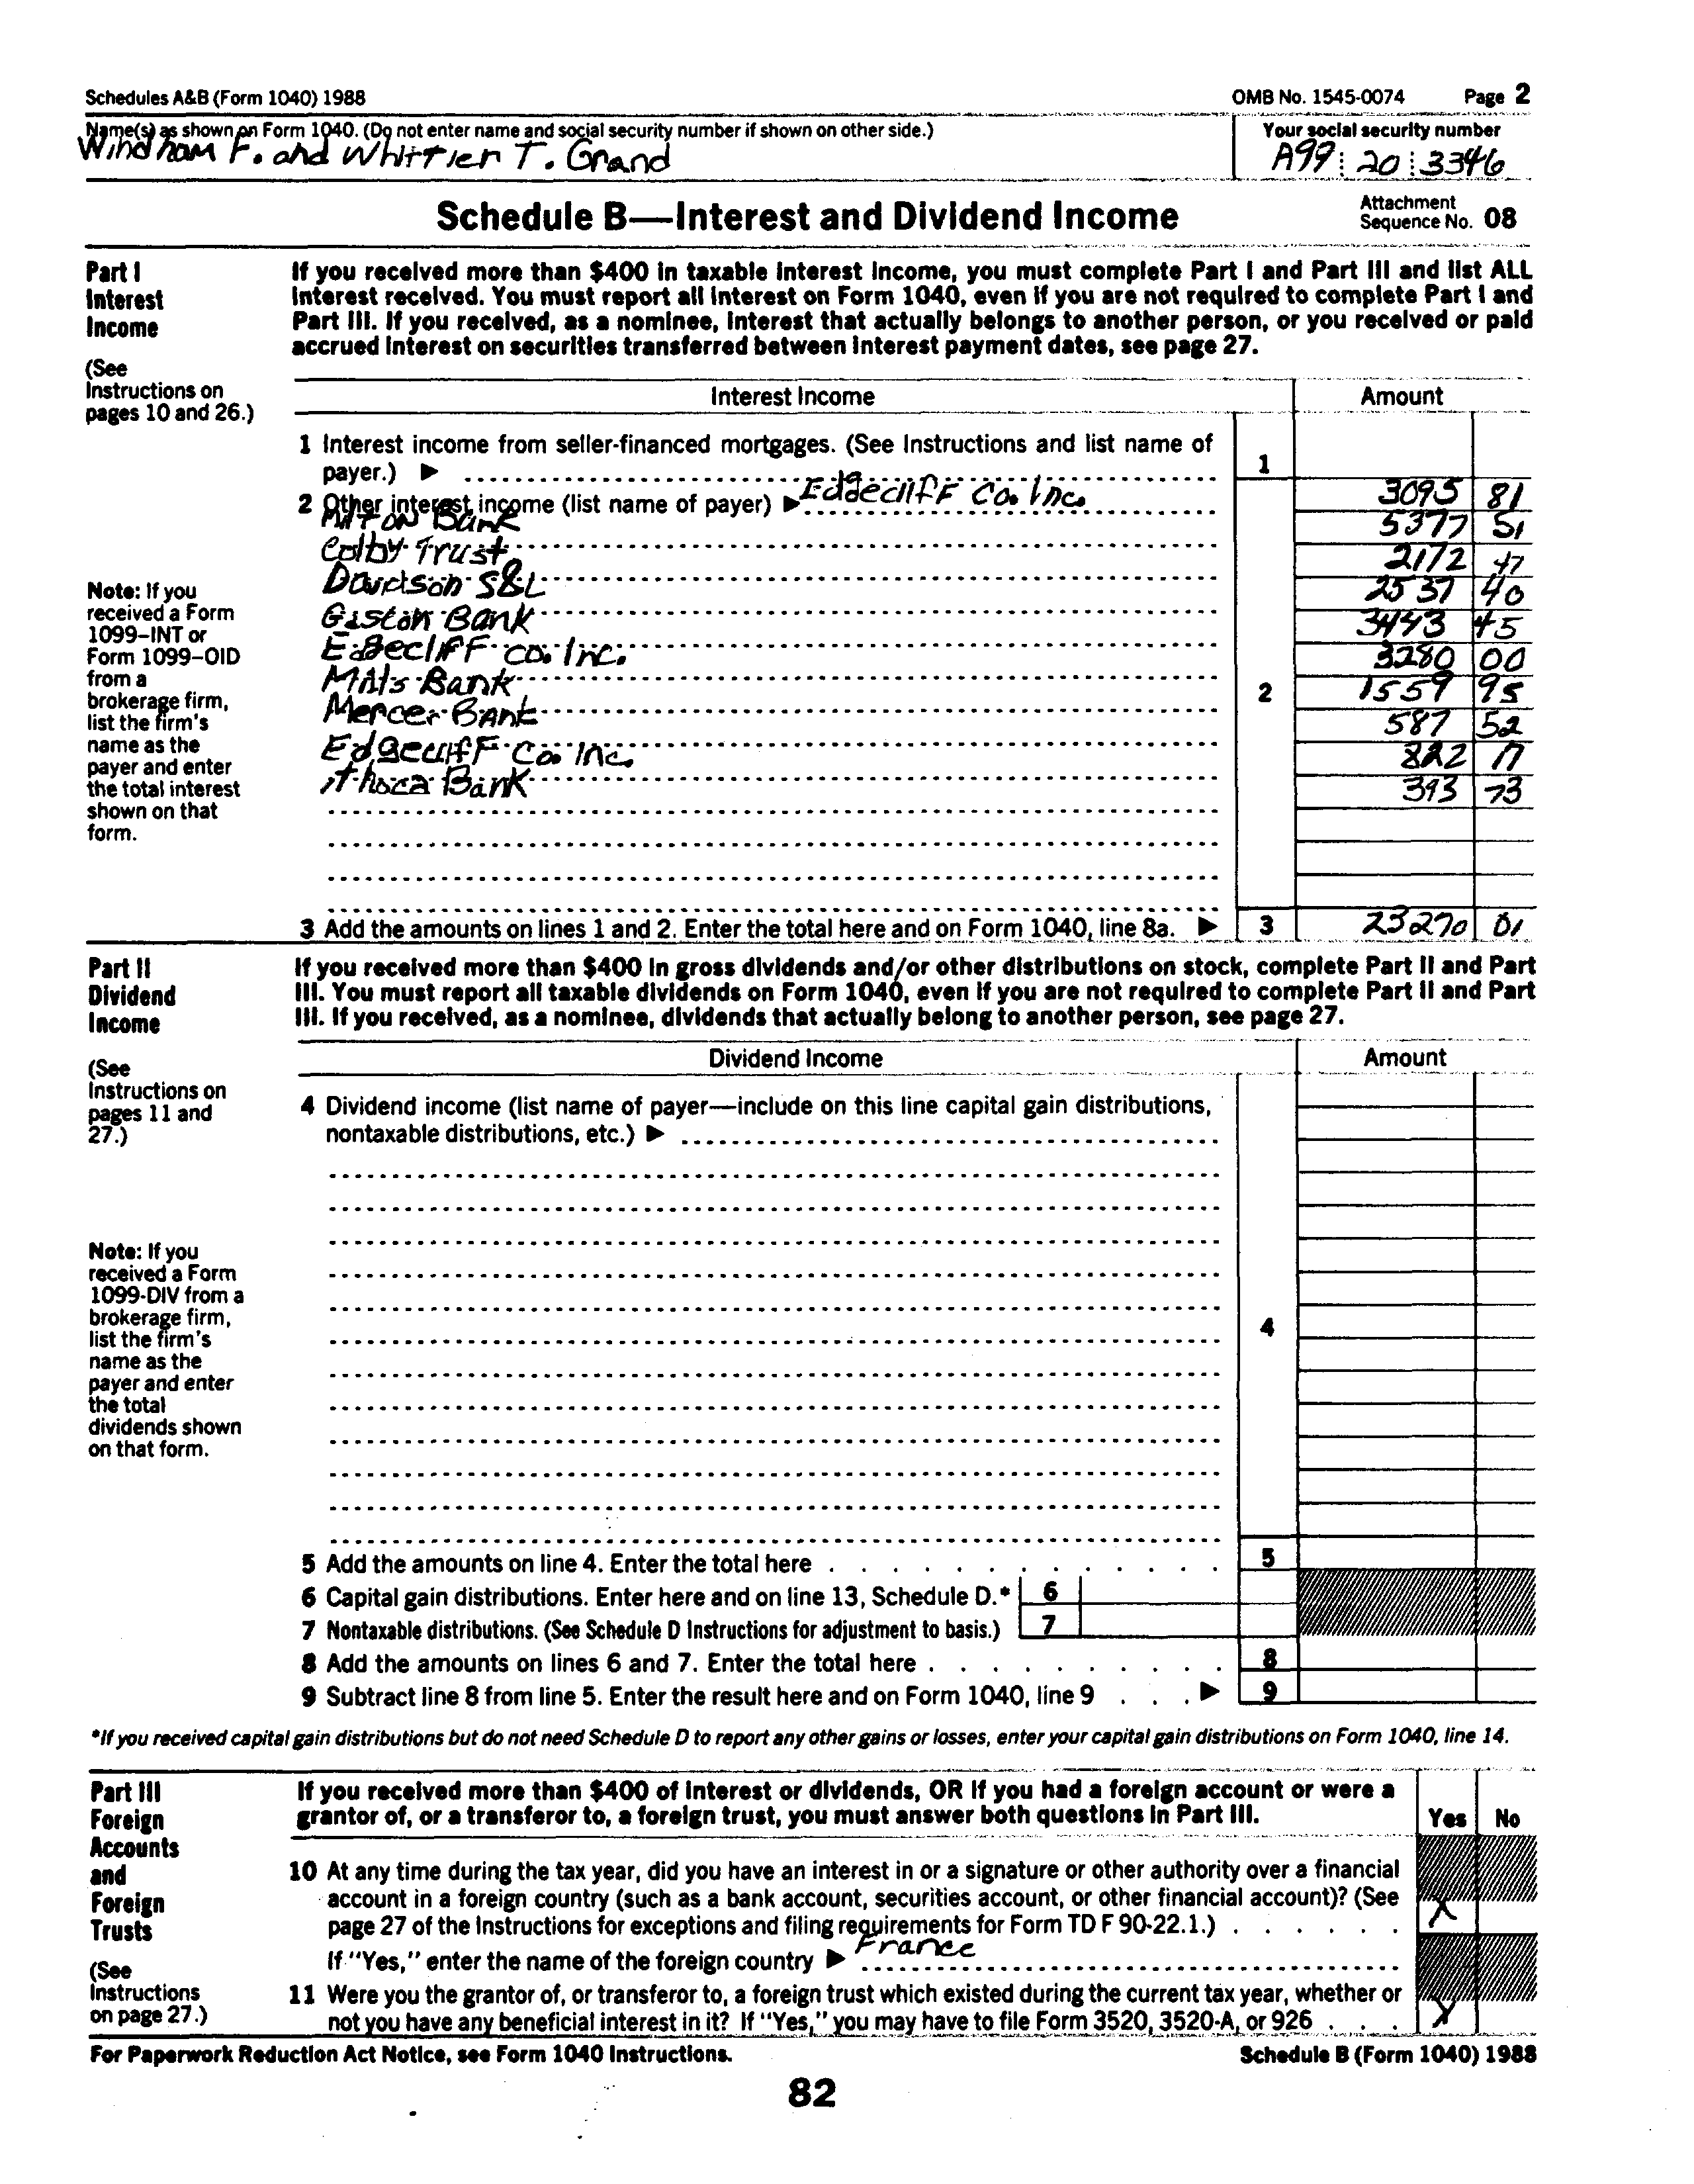 Schedules A&B (Form 1040) 1988 OMB No. 1545-0074 Page 2
Name(s) as shown on Form 1040. (Do not enter name and social security number if shown on other side.) Your social security number
Windham F. and Whittier T. Grand A99 20 3346
Schedule B—Interest and Dividend Income Attachment Sequence No. 08
Part I
Interest
Income
(See
Instructions on
pages 10 and 26.)
If you received more than $400 in taxable interest income, you must complete Part I and Part III and list ALL
interest received. You must report all interest on Form 1040, even if you are not required to complete Part I and
Part III. If you received, as a nominee, interest that actually belongs to another person, or you received or paid
accrued interest on securities transferred between interest payment dates, see page 27.
Interest Income Amount
1 Interest income from seller-financed mortgages. (See Instructions and list name of
payer.) ▶ 1
2 Other interest income (list name of payer) ▶ Edgecliff Co. Inc. 3095 81
Bank 5377 51
Colby Trust 2172 47
Davidson S&L 2537 40
Gaston Bank 3443 45
Edgecliff Co. Inc. 3280 00
Mills Bank 2 1559 95
Mercer Bank 587 52
Edgecliff Co. Inc. 822 17
ithaca Bank 393 73
Note: If you
received a Form
1099–INT or
Form 1099–OID
from a
brokerage firm,
list the firm's
name as the
payer and enter
the total interest
shown on that
form.
3 Add the amounts on lines 1 and 2. Enter the total here and on Form 1040, line 8a. ▶ 3 23270 01
Part II
Dividend
Income
(See
Instructions on
pages 11 and
27.)
If you received more than $400 in gross dividends and/or other distributions on stock, complete Part II and Part
III. You must report all taxable dividends on Form 1040, even if you are not required to complete Part II and Part
III. If you received, as a nominee, dividends that actually belong to another person, see page 27.
Dividend Income Amount
4 Dividend income (list name of payer—include on this line capital gain distributions,
nontaxable distributions, etc.) ▶
4
Note: If you
received a Form
1099-DIV from a
brokerage firm,
list the firm's
name as the
payer and enter
the total
dividends shown
on that form.
5 Add the amounts on line 4. Enter the total here 5
6 Capital gain distributions. Enter here and on line 13, Schedule D.* 6
7 Nontaxable distributions. (See Schedule D Instructions for adjustment to basis.) 7
8 Add the amounts on lines 6 and 7. Enter the total here 8
9 Subtract line 8 from line 5. Enter the result here and on Form 1040, line 9 ▶ 9
*If you received capital gain distributions but do not need Schedule D to report any other gains or losses, enter your capital gain distributions on Form 1040, line 14.
Part III
Foreign
Accounts
and
Foreign
Trusts
(See
Instructions
on page 27.)
If you received more than $400 of interest or dividends, OR if you had a foreign account or were a
grantor of, or a transferor to, a foreign trust, you must answer both questions in Part III. Yes No
10 At any time during the tax year, did you have an interest in or a signature or other authority over a financial
account in a foreign country (such as a bank account, securities account, or other financial account)? (See
page 27 of the Instructions for exceptions and filing requirements for Form TD F 90-22.1.) X
If "Yes," enter the name of the foreign country ▶ France
11 Were you the grantor of, or transferor to, a foreign trust which existed during the current tax year, whether or
not you have any beneficial interest in it? If "Yes," you may have to file Form 3520, 3520-A, or 926 X
For Paperwork Reduction Act Notice, see Form 1040 Instructions. Schedule B (Form 1040) 1988
82